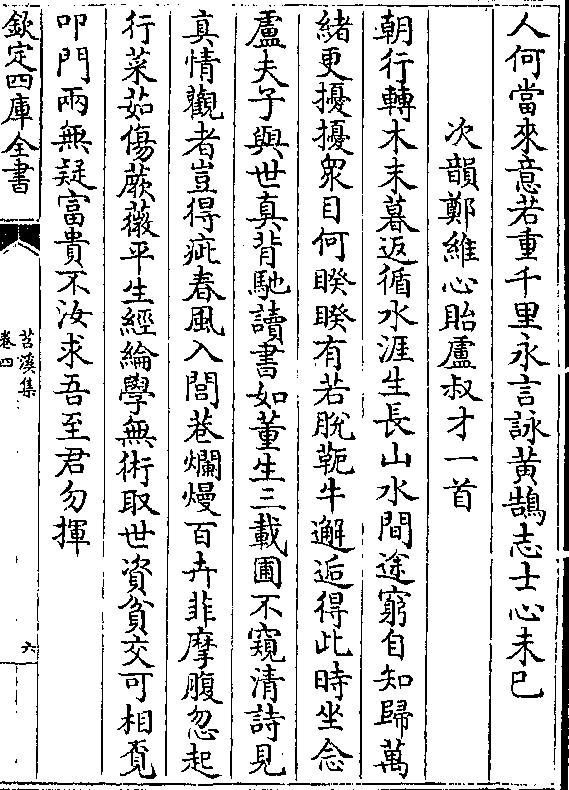 人何當來意若重千里永言詠黄鵠志士心未已
次韻鄭維心貽盧叔才一首
朝行轉木末暮返循水涯生長山水間途窮自知歸萬
緒更擾擾衆目何睽睽有若脫軛牛邂逅得此時坐念
盧夫子與世真背馳讀書如董生三載圃不窺清詩見
真情觀者豈得疵春風入閭巷爛熳百卉菲摩腹忽起
行菜茹傷蕨薇平生經綸學無術取世資貧交可相覔
叩門兩無疑富貴不汝求吾至君勿揮
欽定四庫全書
苕溪集
卷四
六